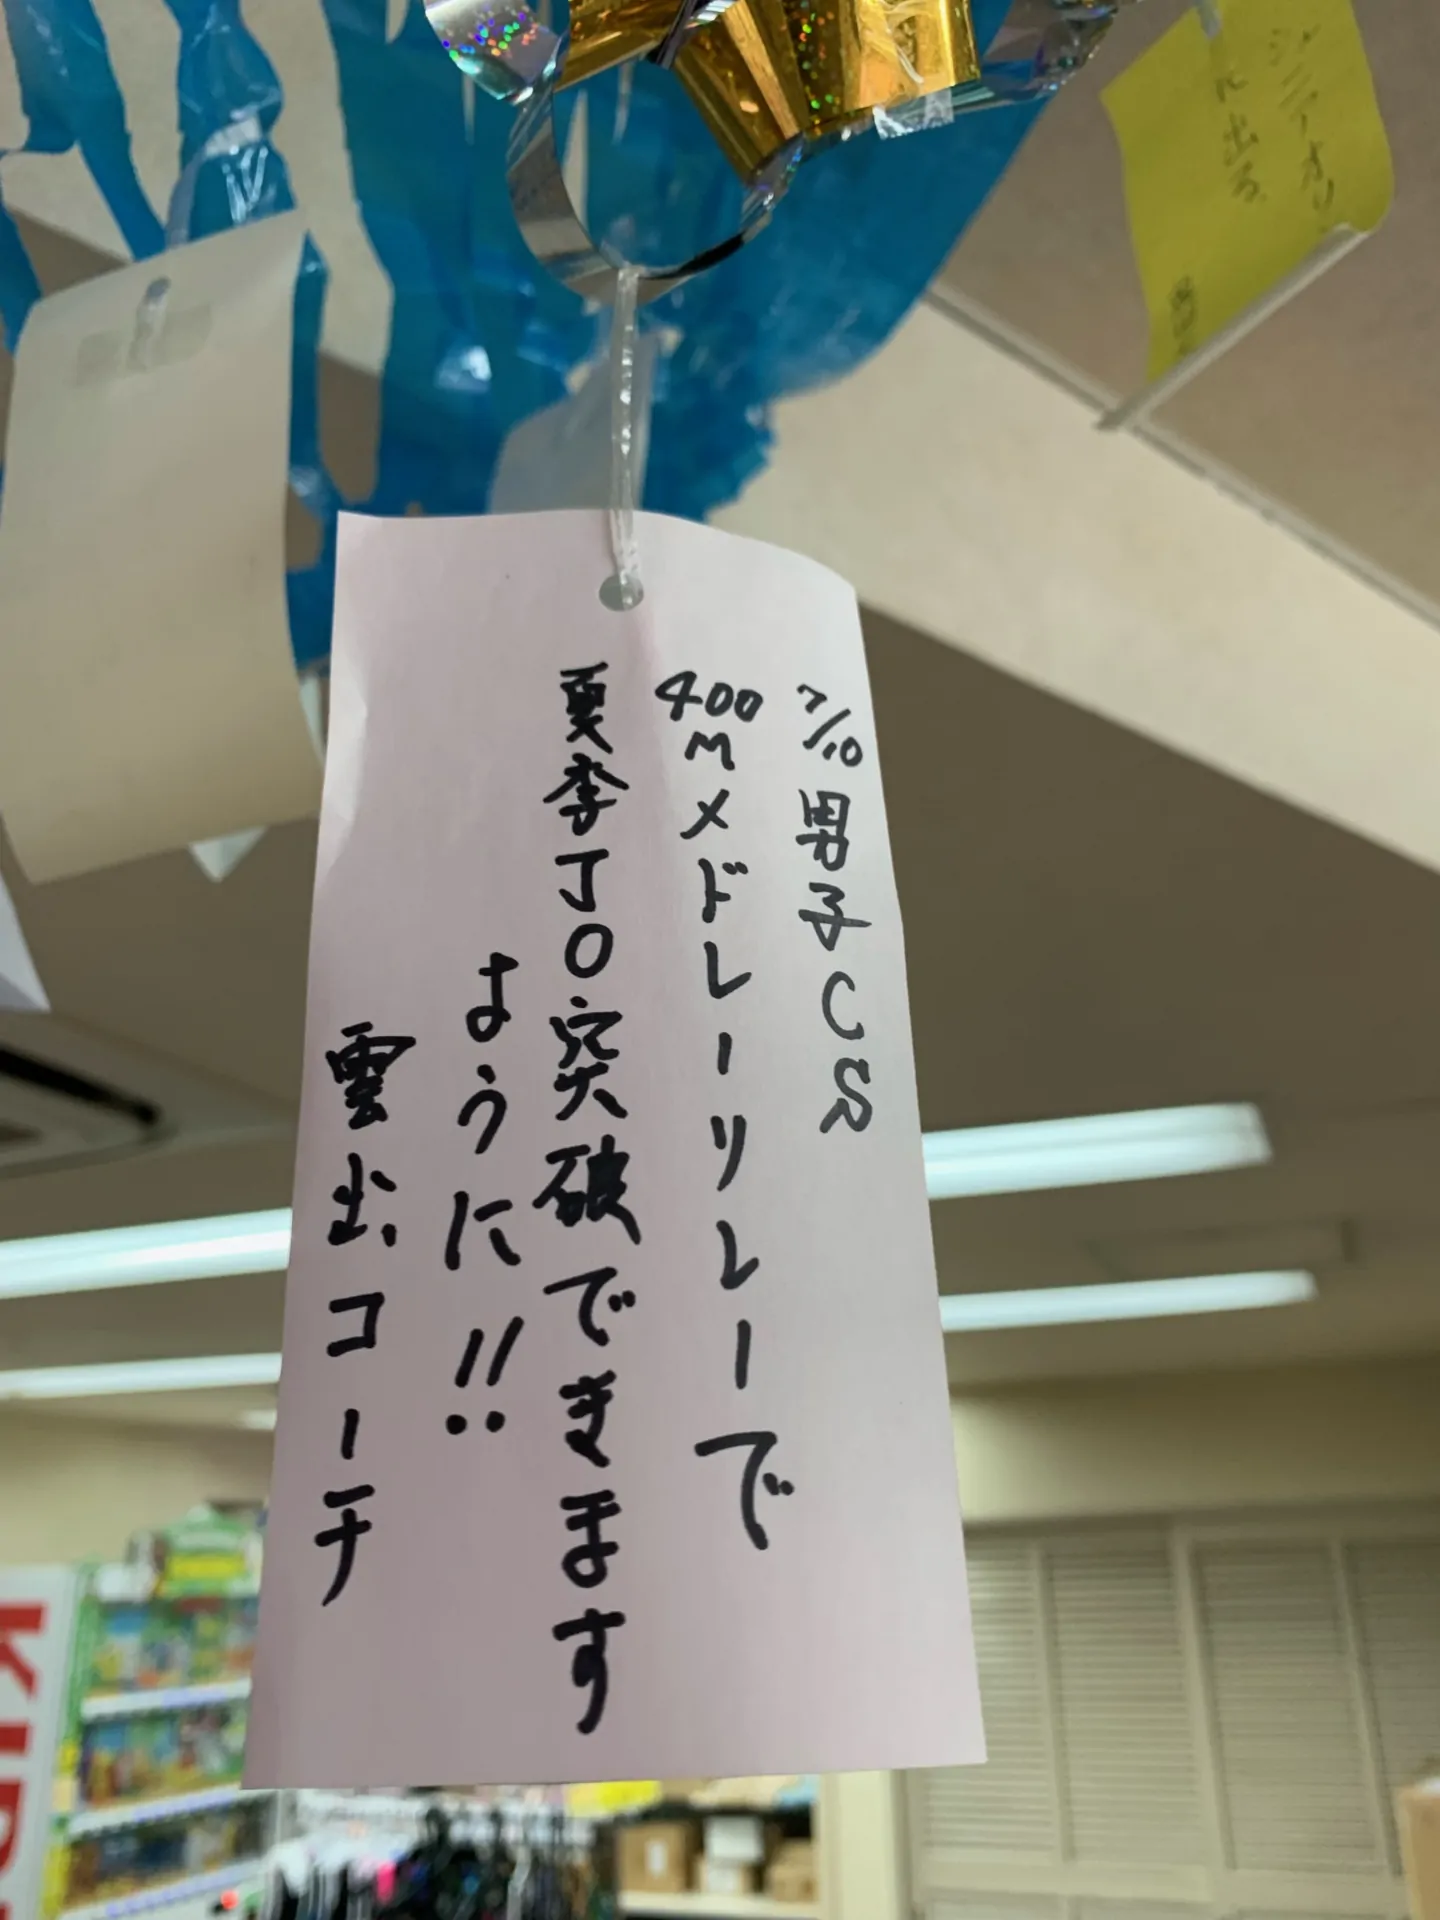 7/10 男子CS
400Mメドレーリレーで
夏季JO突破できます
ように!!
雲出コーチ
ジュニアオリ
に出る